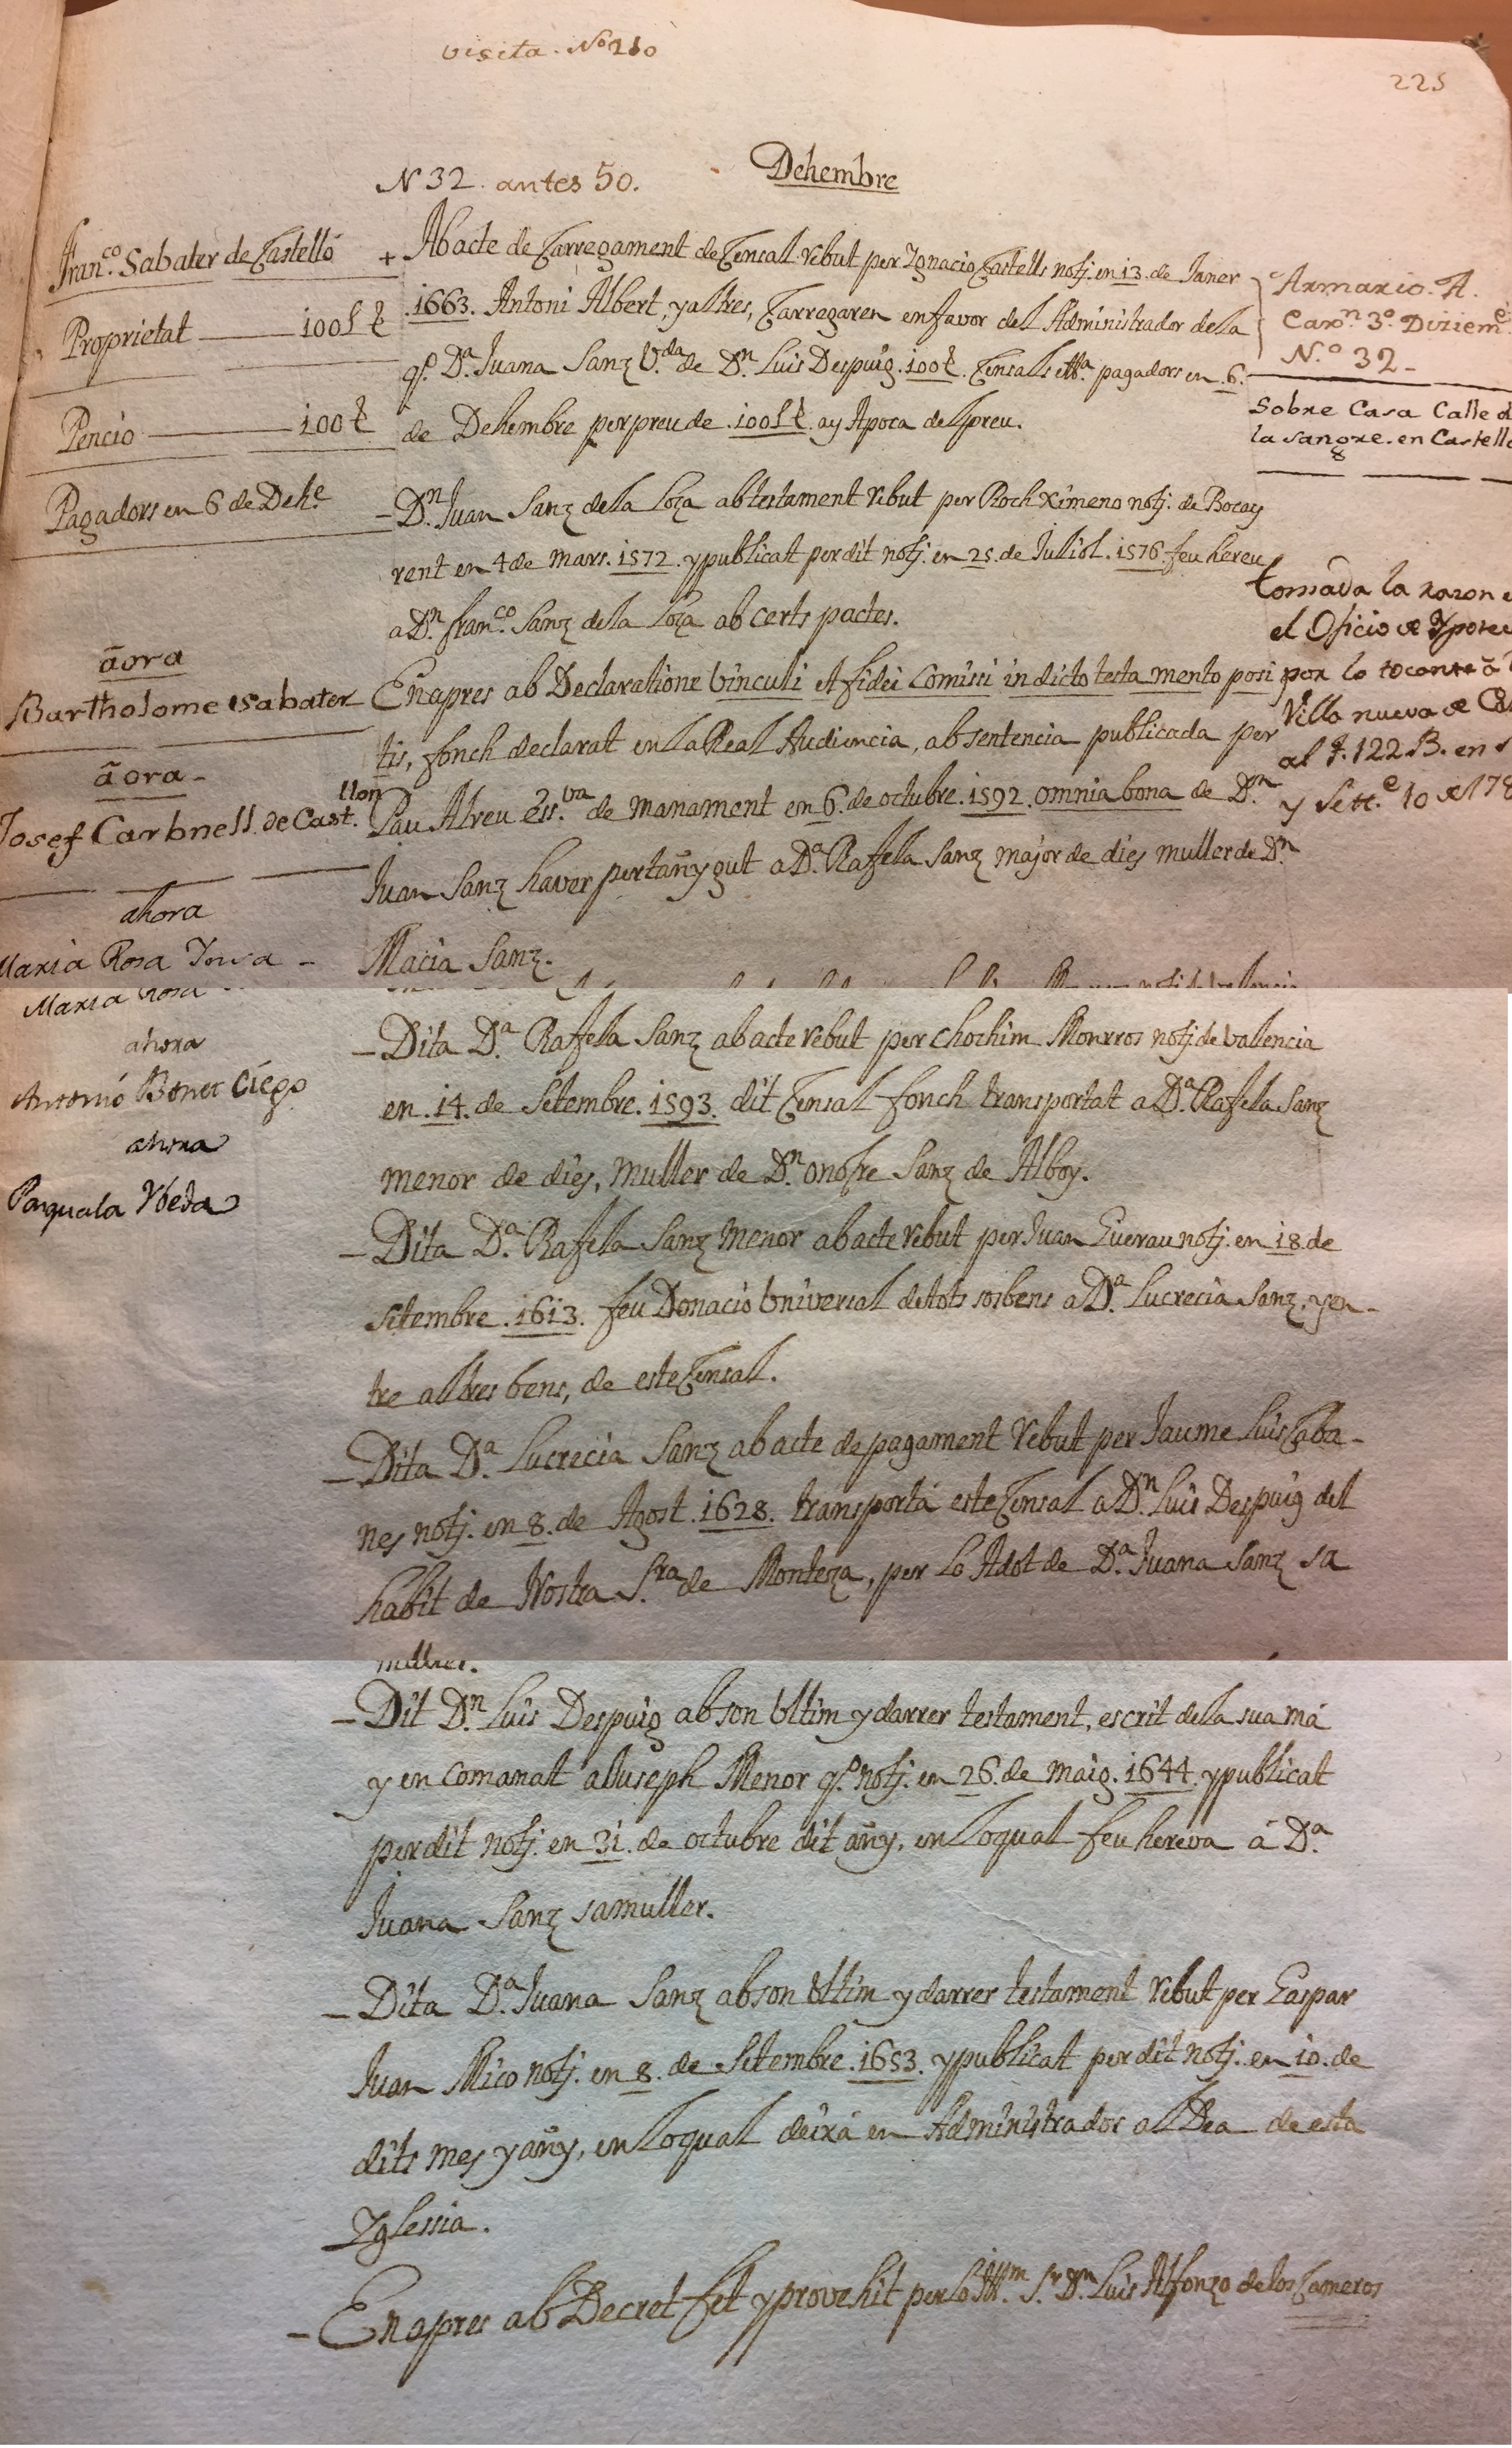 visita. Nº 210
225
N 32. antes 50.
Dehembre
Franco. Sabater de Castelló
Proprietat 100 L ŧ
Pencio 100 ŧ
Pagadors en 6 de Dehe.
āora
Bartholome Sabater
āora
Josef Carbnell de Cast.llon
ahora
Maria Rosa
ahora
Antonió Bonet Ciego
ahora
Pasquala Vbeda
+ Ab acte de Carregament de Censal rebut per Ygnacio Castells notj. en 13. de Janer
1663. Antoni Albert, y altres, Carregaren en favor del Administrador de la
qº. Da. Juana Sanz V.da de Dn. Luis Despuig. 100 ŧ. Censals pagadors en .6.
de Dehembre per preu de .100 L ŧ. ay Apoca del preu.
– Dn. Juan Sanz de la Loza ab testament rebut per Roch Ximeno notj. de Bocay
rent en 4 de mars. 1572. y publicat per dit notj. en 25. de Juliol. 1576. feu hereu
a Dn. franco. Sanz de la Loza ab certs pactes.
En apres ab Declaratione Vinculi et fidei Comissi in dicto testamento posi
tis, fonch declarat en la Real Audiencia, ab sentencia publicada per
Pau Alreu Ess.va de manament en 6. de octubre. 1592. omnia bona de Dn.
Juan Sanz haver pertañygut a Da. Rafela Sanz major de dies muller de Dn.
Macia Sanz.
– Dita Da. Rafela Sanz ab acte rebut per Chochim Monrros notj. de Vallencia
en .14. de Setembre. 1593. dit Censal fonch transportat a Da. Rafela Sanz
menor de dies, muller de Dn. Onofre Sanz de Alboy.
– Dita Da. Rafela Sanz menor ab acte rebut per Juan Guerau notj. en 18. de
Setembre. 1613. feu Donacio Vniversal de tots sos bens a Da. Lucrecia Sanz, y en-
tre altres bens, de este Censal.
– Dita Da. Lucrecia Sanz ab acte de pagament rebut per Jaume Luis Caba-
nes notj. en 8. de Agost. 1628. transportá este Censal a Dn. Luis Despuig del
habit de Nostra S.ra de Monteza, per lo Adot de Da. Juana Sanz sa
muller.
– Dit Dn. Luis Despuig ab son Vltim y darrer testament, escrit de la sua má
y en comanat a Juseph Menor qº. notj. en 26. de maig. 1644. y publicat
per dit notj. en 31. de octubre dit añy, en lo qual feu hereva á Da.
Juana Sanz sa muller.
– Dita Da. Juana Sanz ab son Vltim y darrer testament rebut per Gaspar
Juan Mico notj. en 8. de Setembre. 1653. y publicat per dit notj. en 10. de
dits mes y añy, en lo qual deixá en Administrador al Dea de esta
Yglesia.
– En apres ab Decret fet y provehit per lo Illm. Sr. Dn. Luis Alfonzo de los Cameros
Armario. A.
Caxon. 3º. Diziem.e
N.º 32
Sobre Casa Calle d
la sangre. en Castell
tomada la razon e
el Oficio de Ypotec
por lo tocante á
Villa nueva de Cas
al f. 122 B. en
y Sett.e 10 de 178